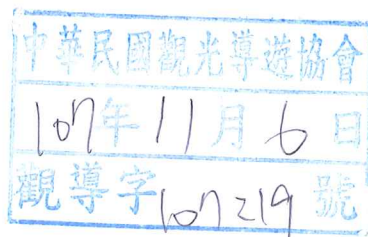 中華民國觀光導遊協會
107年11月6日
觀導字107219號